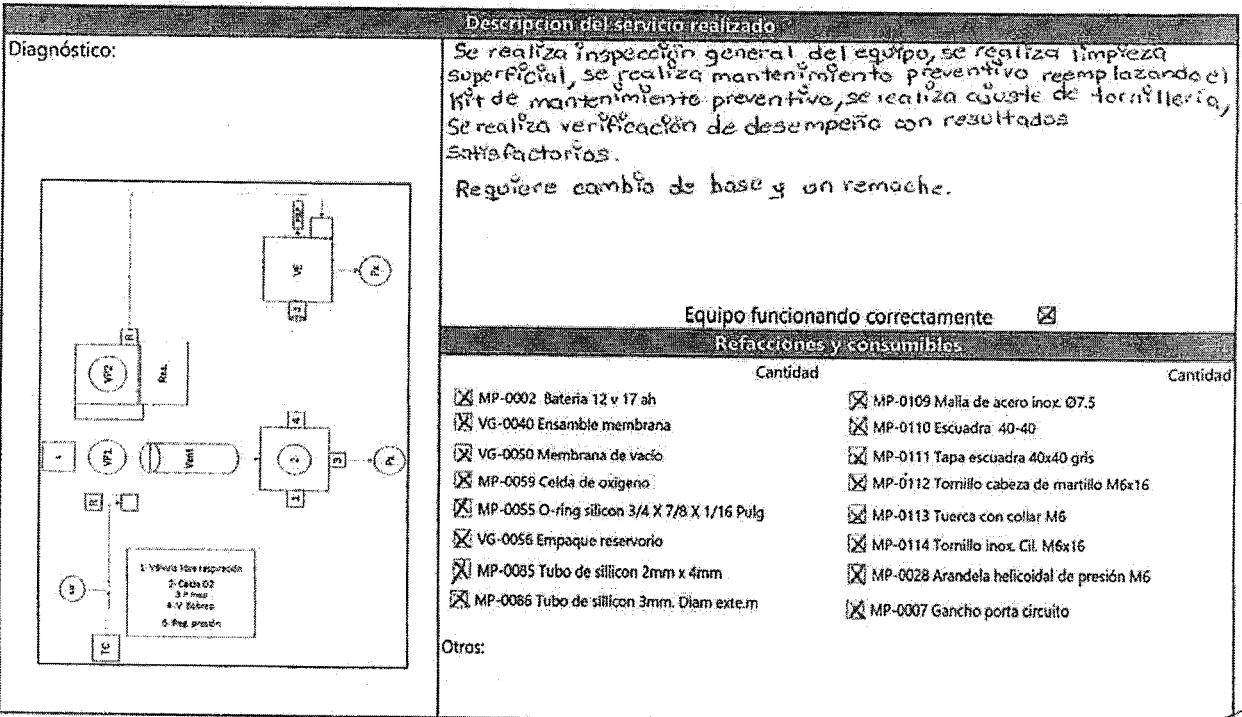 Descripción del servicio realizado
Diagnóstico:
Se realiza inspección general del equipo, se realiza limpieza
superficial, se realiza mantenimiento preventivo reemplazando el
kit de mantenimiento preventivo, se realiza ajuste de tornillería,
Se realiza verificación de desempeño con resultados
satisfactorios.
Requiere cambio de base y un remache.
Equipo funcionando correctamente
Refacciones y consumibles
Cantidad
Cantidad
MP-0002 Bateria 12 v 17 ah
VG-0040 Ensamble membrana
VG-0050 Membrana de vacío
MP-0059 Celda de oxigeno
MP-0055 O-ring silicon 3/4 X 7/8 X 1/16 Pulg
VG-0056 Empaque reservorio
MP-0085 Tubo de sillicon 2mm x 4mm
MP-0086 Tubo de sillicon 3mm. Diam exte.m
MP-0109 Malla de acero inox. Ø7.5
MP-0110 Escuadra 40-40
MP-0111 Tapa escuadra 40x40 gris
MP-0112 Tornillo cabeza de martillo M6x16
MP-0113 Tuerca con collar M6
MP-0114 Tornillo inox. Cil. M6x16
MP-0028 Arandela helicoidal de presión M6
MP-0007 Gancho porta circuito
Otros:
VE
Px
R
VP2
Res.
4
VP1
Vent
2
3
Px
1
R
5
TC
1- Válvula libre respiración
2- Celda O2
3 P insp
4- V. Sobrep
5- Reg. presión